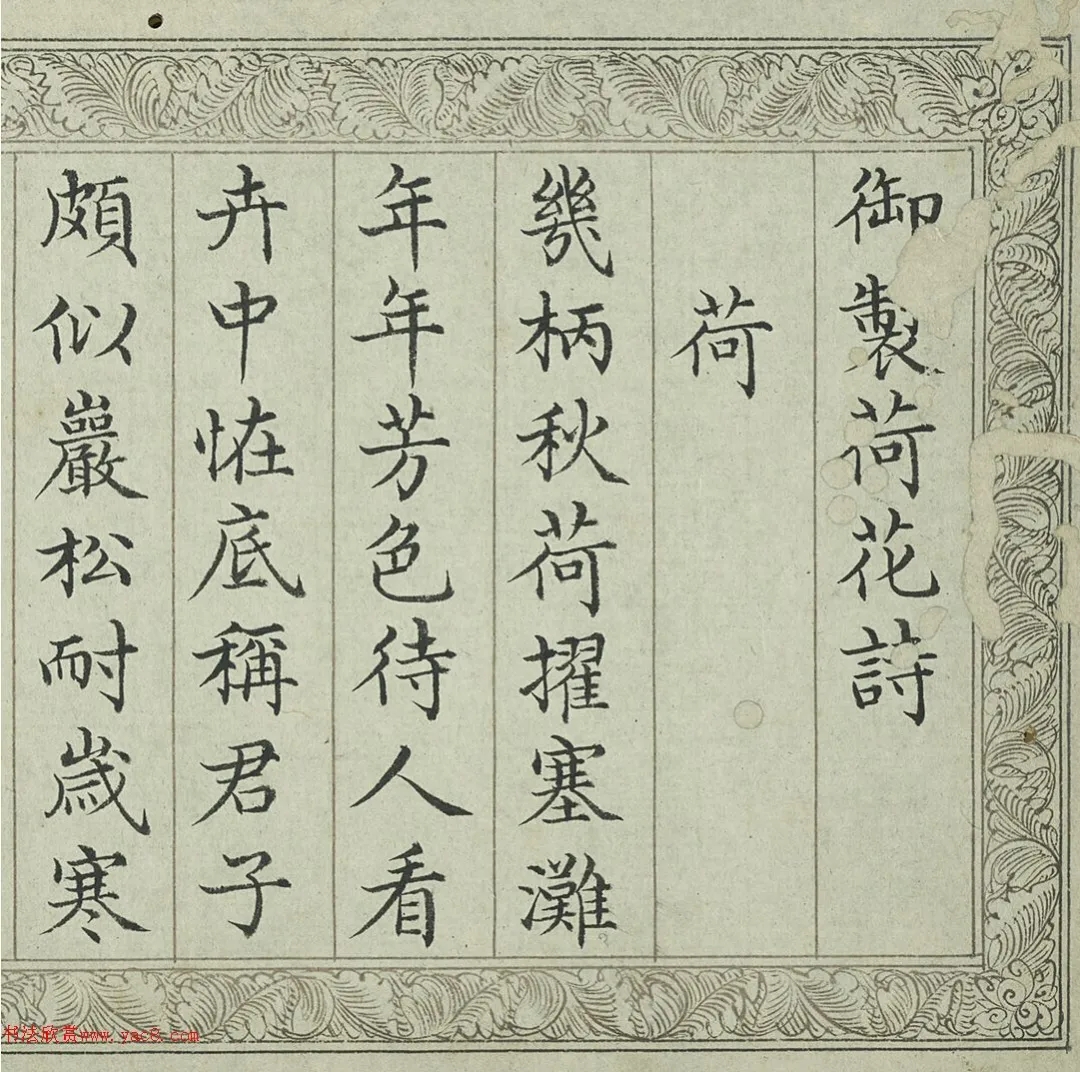 御製荷花詩
荷
幾柄秋荷擢塞灘
年年芳色待人看
卉中恠底稱君子
頗似巖松耐歲寒
书法欣赏www.yac8.com